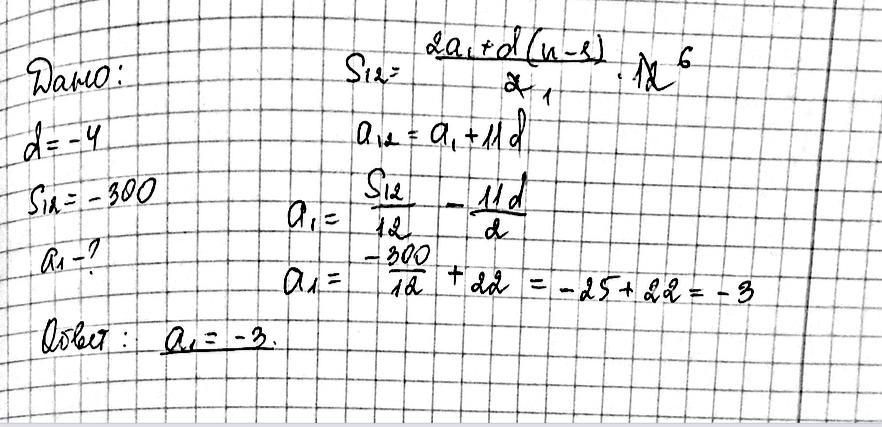 Дано:
d = -4
S₁₂ = -300
a₁ - ?
S₁₂ = (2a₁ + d(n - 1))/2 · 12 6
1
a₁₂ = a₁ + 11d
a₁ = S₁₂/12 - 11d/2
a₁ = -300/12 + 22 = -25 + 22 = -3
Ответ: a₁ = -3.